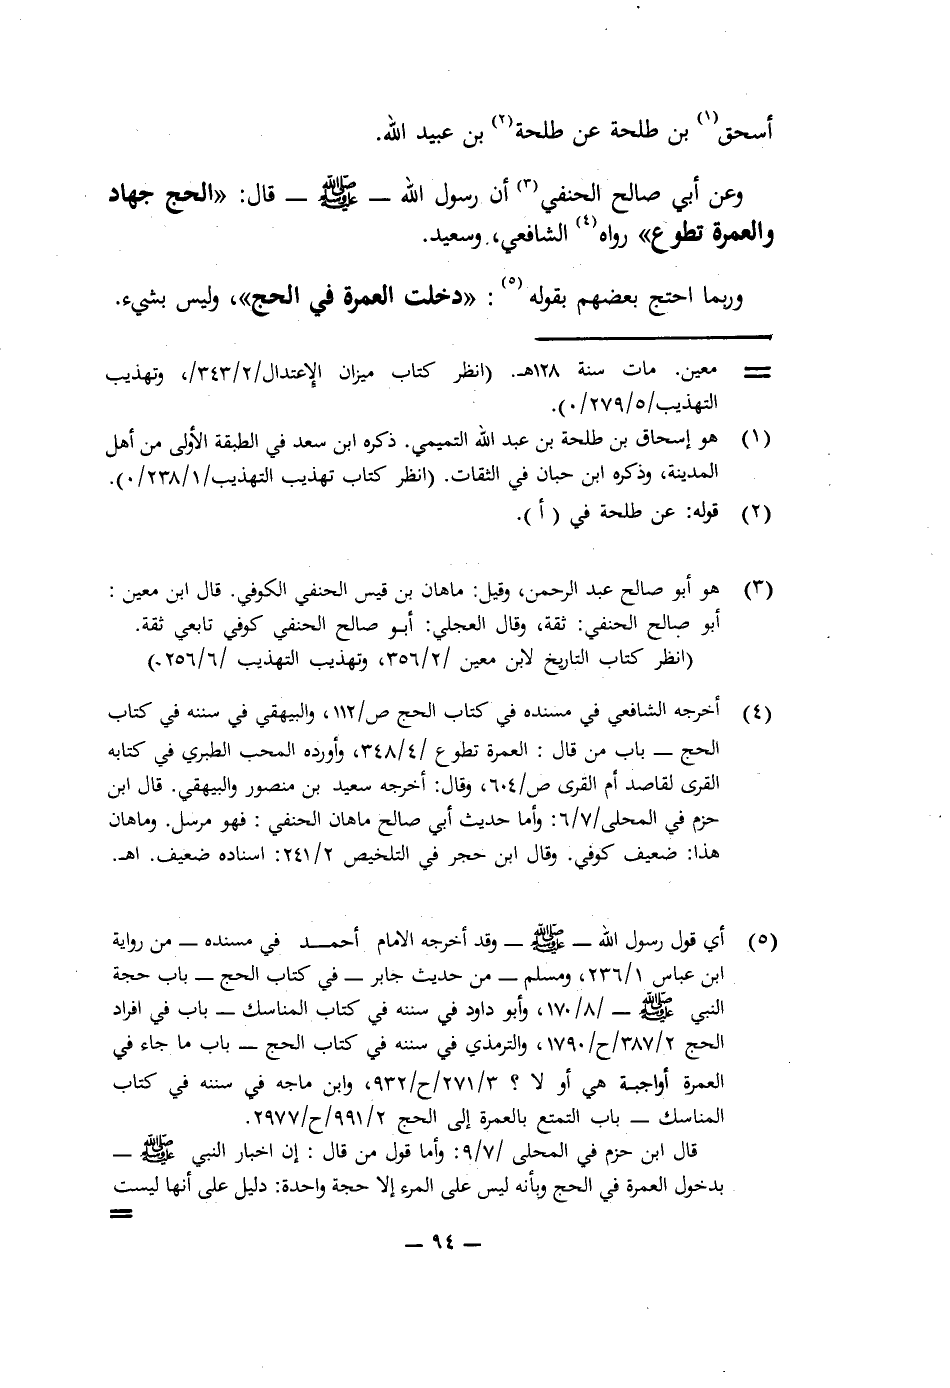 أسحق(١) بن طلحة عن طلحة(٢) بن عبيد الله.
وعن أبي صالح الحنفي(٣) أن رسول الله ــ ﷺ ــ قال: «الحج جهاد
والعمرة تطوع» رواه(٤) الشافعي، وسعيد.
وربما احتج بعضهم بقوله(٥): «دخلت العمرة في الحج»، وليس بشيء.
= معين. مات سنة ١٢٨هـ. (انظر كتاب ميزان الإعتدال/٣٤٣/٢/، وتهذيب
التهذيب/٢٧٩/٥/٠).
(١) هو إسحاق بن طلحة بن عبد الله التميمي. ذكره ابن سعد في الطبقة الأولى من أهل
المدينة، وذكره ابن حبان في الثقات. (انظر كتاب تهذيب التهذيب/٢٣٨/١/٠).
(٢) قوله: عن طلحة في ( أ ).
(٣) هو أبو صالح عبد الرحمن، وقيل: ماهان بن قيس الحنفي الكوفي. قال ابن معين :
أبو صالح الحنفي: ثقة، وقال العجلي: أبو صالح الحنفي كوفي تابعي ثقة.
(انظر كتاب التاريخ لابن معين /٣٥٦/٢، وتهذيب التهذيب /٢٥٦/٦.)
(٤) أخرجه الشافعي في مسنده في كتاب الحج ص/١١٢، والبيهقي في سننه في كتاب
الحج ــ باب من قال : العمرة تطوع /٣٤٨/٤، وأورده المحب الطبري في كتابه
القرى لقاصد أم القرى ص/٦٠٤، وقال: أخرجه سعيد بن منصور والبيهقي. قال ابن
حزم في المحلى/٦/٧: وأما حديث أبي صالح ماهان الحنفي : فهو مرسل. وماهان
هذا: ضعيف كوفي. وقال ابن حجر في التلخيص ٢٤١/٢: اسناده ضعيف. اهـ.
(٥) أي قول رسول الله ــ ﷺ ــ وقد أخرجه الامام أحمد في مسنده ــ من رواية
ابن عباس ٢٣٦/١، ومسلم ــ من حديث جابر ــ في كتاب الحج ــ باب حجة
النبي ﷺ ــ /١٧٠/٨، وأبو داود في سننه في كتاب المناسك ــ باب في افراد
الحج ٣٨٧/٢/ح/١٧٩٠، والترمذي في سننه في كتاب الحج ــ باب ما جاء في
العمرة أواجبة هي أو لا ؟ ٢٧١/٣/ح/٩٣٢، وابن ماجه في سننه في كتاب
المناسك ــ باب التمتع بالعمرة إلى الحج ٩٩١/٢/ح/٢٩٧٧.
قال ابن حزم في المحلى /٩/٧: وأما قول من قال : إن اخبار النبي ﷺ ــ
بدخول العمرة في الحج وبأنه ليس على المرء إلا حجة واحدة: دليل على أنها ليست
=
ــ ٩٤ ــ